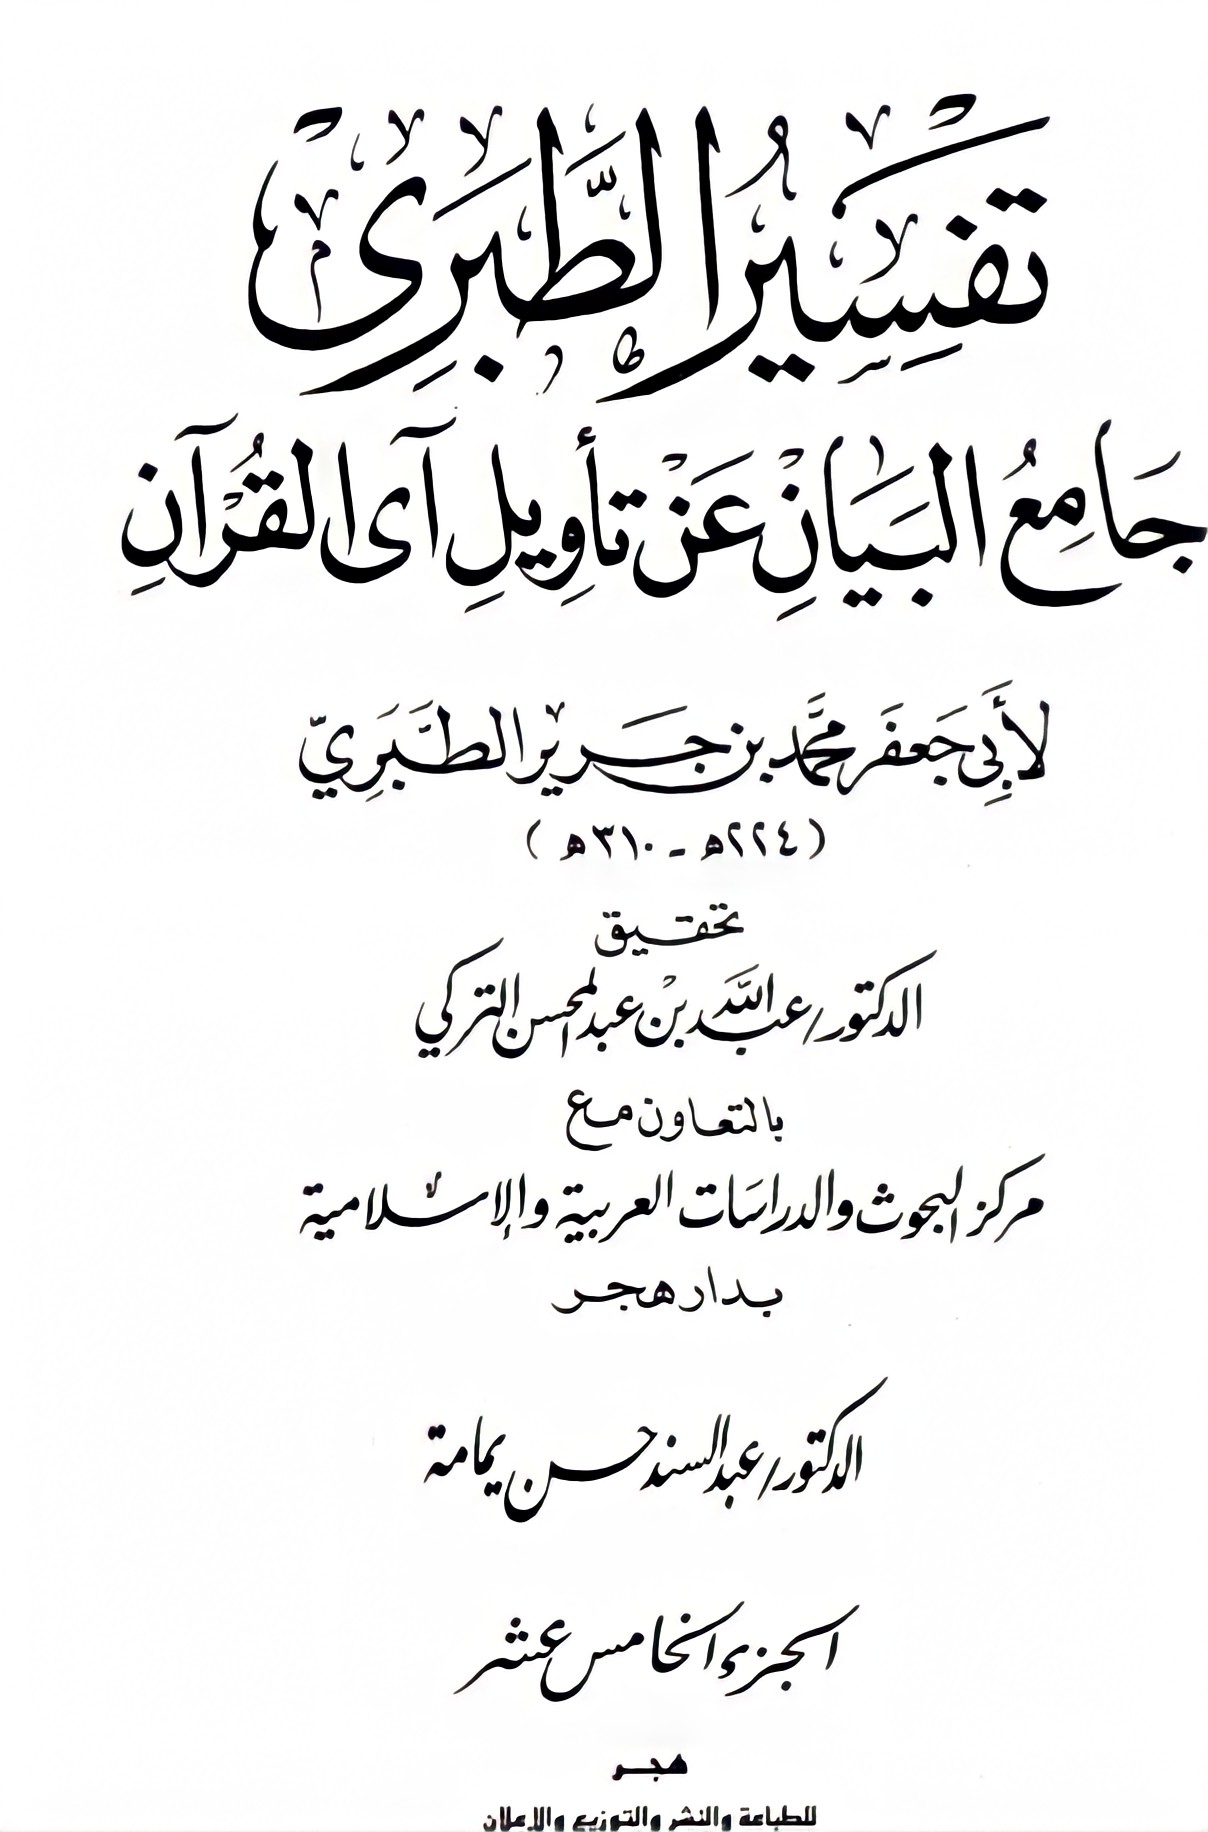 تَفْسِيرُ الطَّبَرِيْ
جَامِعُ البَيَانِ عَنْ تَأْوِيلِ آىِ القُرْآنِ
لأَبِي جَعفَر مُحَمَّد بن جَرِير الطَّبَرِيّ
(٢٢٤هـ - ٣١٠هـ)
تحقيق
الدكتور/ عبد اللَّه بنْ عبد المحسن التركي
بالتعاون مع
مركز البحوث والدراسات العربية والإسلامية
بدار هجر
الدكتور/ عبد السند حسن يمامة
الجزء الخامس عشر
هجر
للطباعة والنشر والتوزيع والإعلان